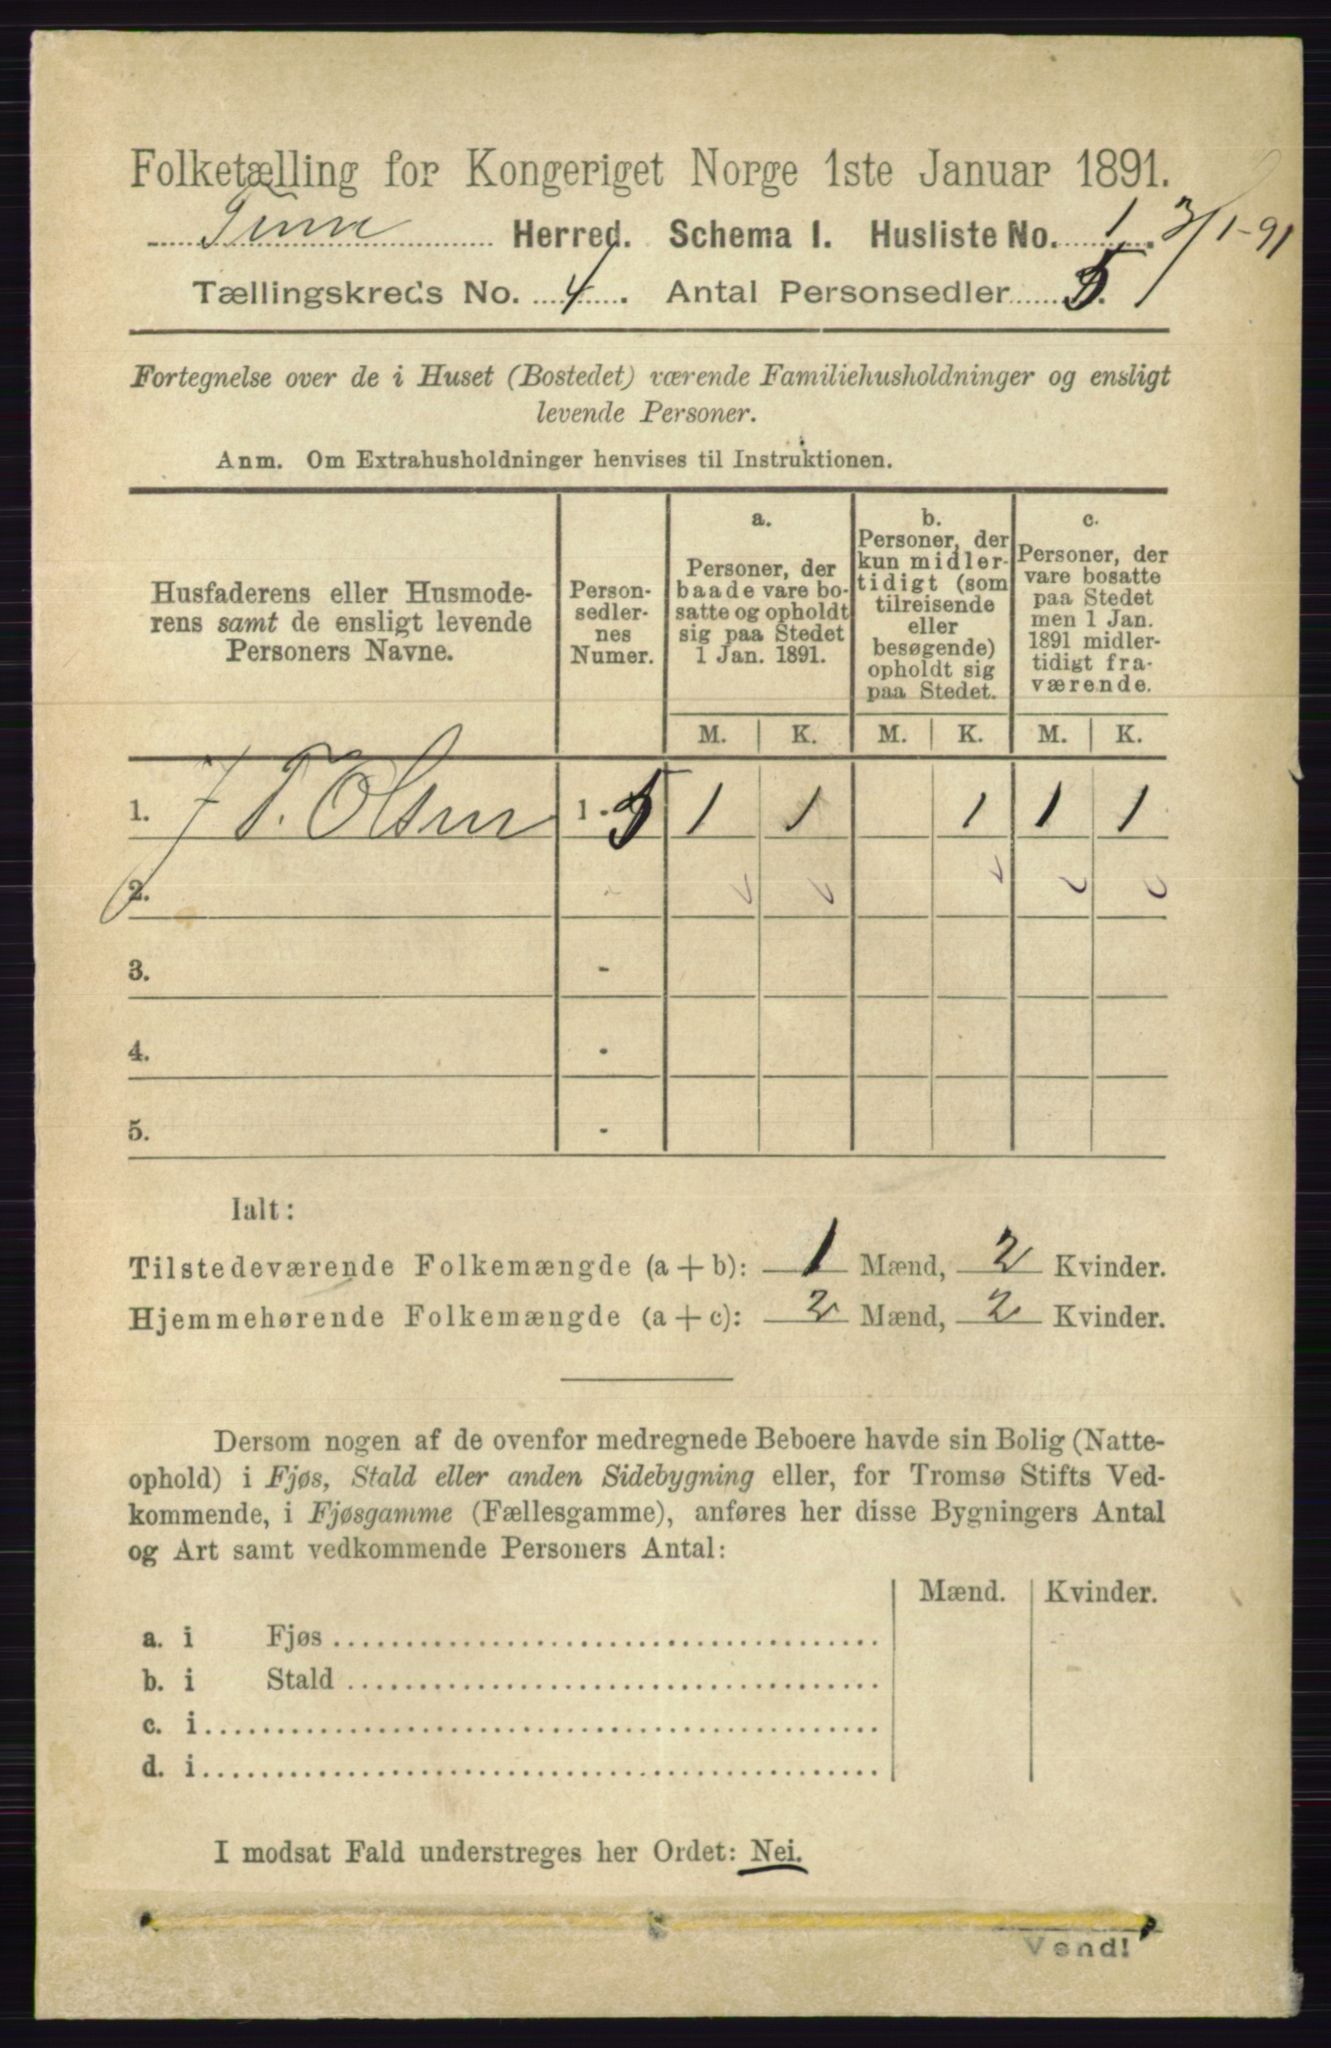 Folketælling for Kongeriget Norge 1ste Januar 1891.
Tune Herred. Schema I. Husliste No. 1. 3/1-91
Tællingskreds No. 4. Antal Personsedler 5.
Fortegnelse over de i Huset (Bostedet) værende Familiehusholdninger og ensligt
levende Personer.
Anm. Om Extrahusholdninger henvises til Instruktionen.
Husfaderens eller Husmode-
rens samt de ensligt levende
Personers Navne.
Person-
sedler-
nes
Numer.
a.
Personer, der
baade vare bo-
satte og opholdt
sig paa Stedet
1 Jan. 1891.
b.
Personer, der
kun midler-
tidigt (som
tilreisende
eller
besøgende)
opholdt sig
paa Stedet.
c.
Personer, der
vare bosatte
paa Stedet
men 1 Jan.
1891 midler-
tidigt fra-
værende.
M. K. M. K. M. K.
1. J. T. Olsen 1 - 5 1 1 1 1 1
2. -
3. -
4. -
5. -
Ialt:
Tilstedeværende Folkemængde (a + b): 1 Mænd, 2 Kvinder.
Hjemmehørende Folkemængde (a + c): 2 Mænd, 2 Kvinder.
Dersom nogen af de ovenfor medregnede Beboere havde sin Bolig (Natte-
ophold) i Fjøs, Stald eller anden Sidebygning eller, for Tromsø Stifts Ved-
kommende, i Fjøsgamme (Fællesgamme), anføres her disse Bygningers Antal
og Art samt vedkommende Personers Antal:
Mænd. Kvinder.
a. i Fjøs
b. i Stald
c. i
d. i
I modsat Fald understreges her Ordet: Nei.
Vend!